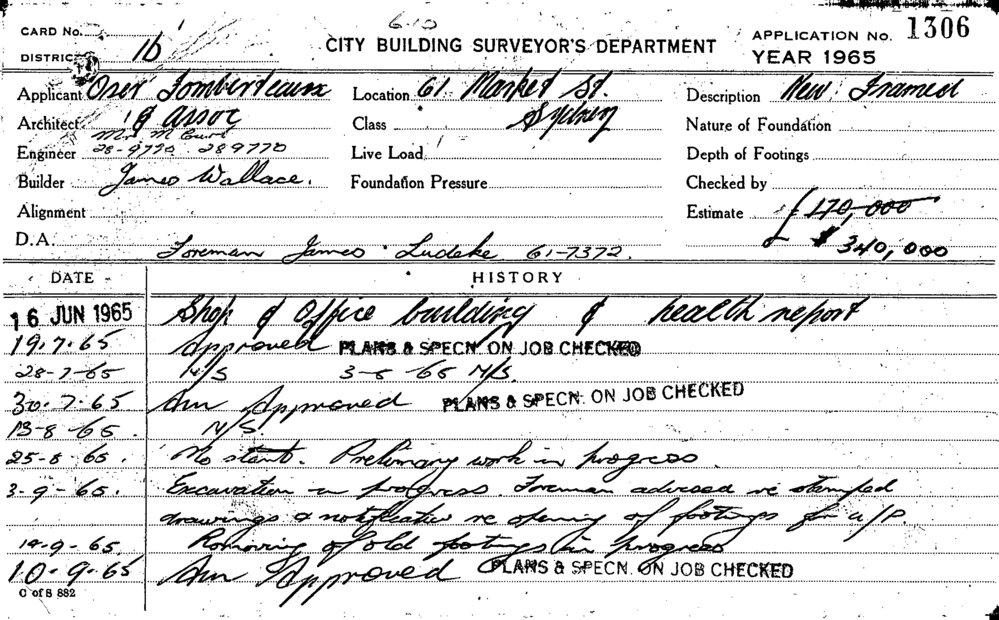 6.10
CARD No. CITY BUILDING SURVEYOR'S DEPARTMENT APPLICATION No. 1306
DISTRICT 1b YEAR 1965
Applicant Oser Fombertaux Location 61 Market St. Description New Framed
Architect & Assoc Class Sydney Nature of Foundation
Engineer 28-9770 289770 Live Load Depth of Footings
Builder James Wallace. Foundation Pressure Checked by
Alignment Estimate £170,000
D.A. Foreman James Ludeke 61-7372. $340,000
DATE HISTORY
16 JUN 1965 Shop & Office building & health report
19.7.65 Approved PLANS & SPECN. ON JOB CHECKED
28-7-65 N/S 3-8-65 N/S.
30.7.65 Am Approved PLANS & SPECN. ON JOB CHECKED
13-8-65. N/S.
25-8-65. No start. Preliminary work in progress.
3-9-65. Excavation in progress. Foreman advised re stamped
drawings & notification re opening of footings for a/P.
14-9-65. Removing of old footings in progress
10.9.65 Am Approved PLANS & SPECN. ON JOB CHECKED
C of S 882